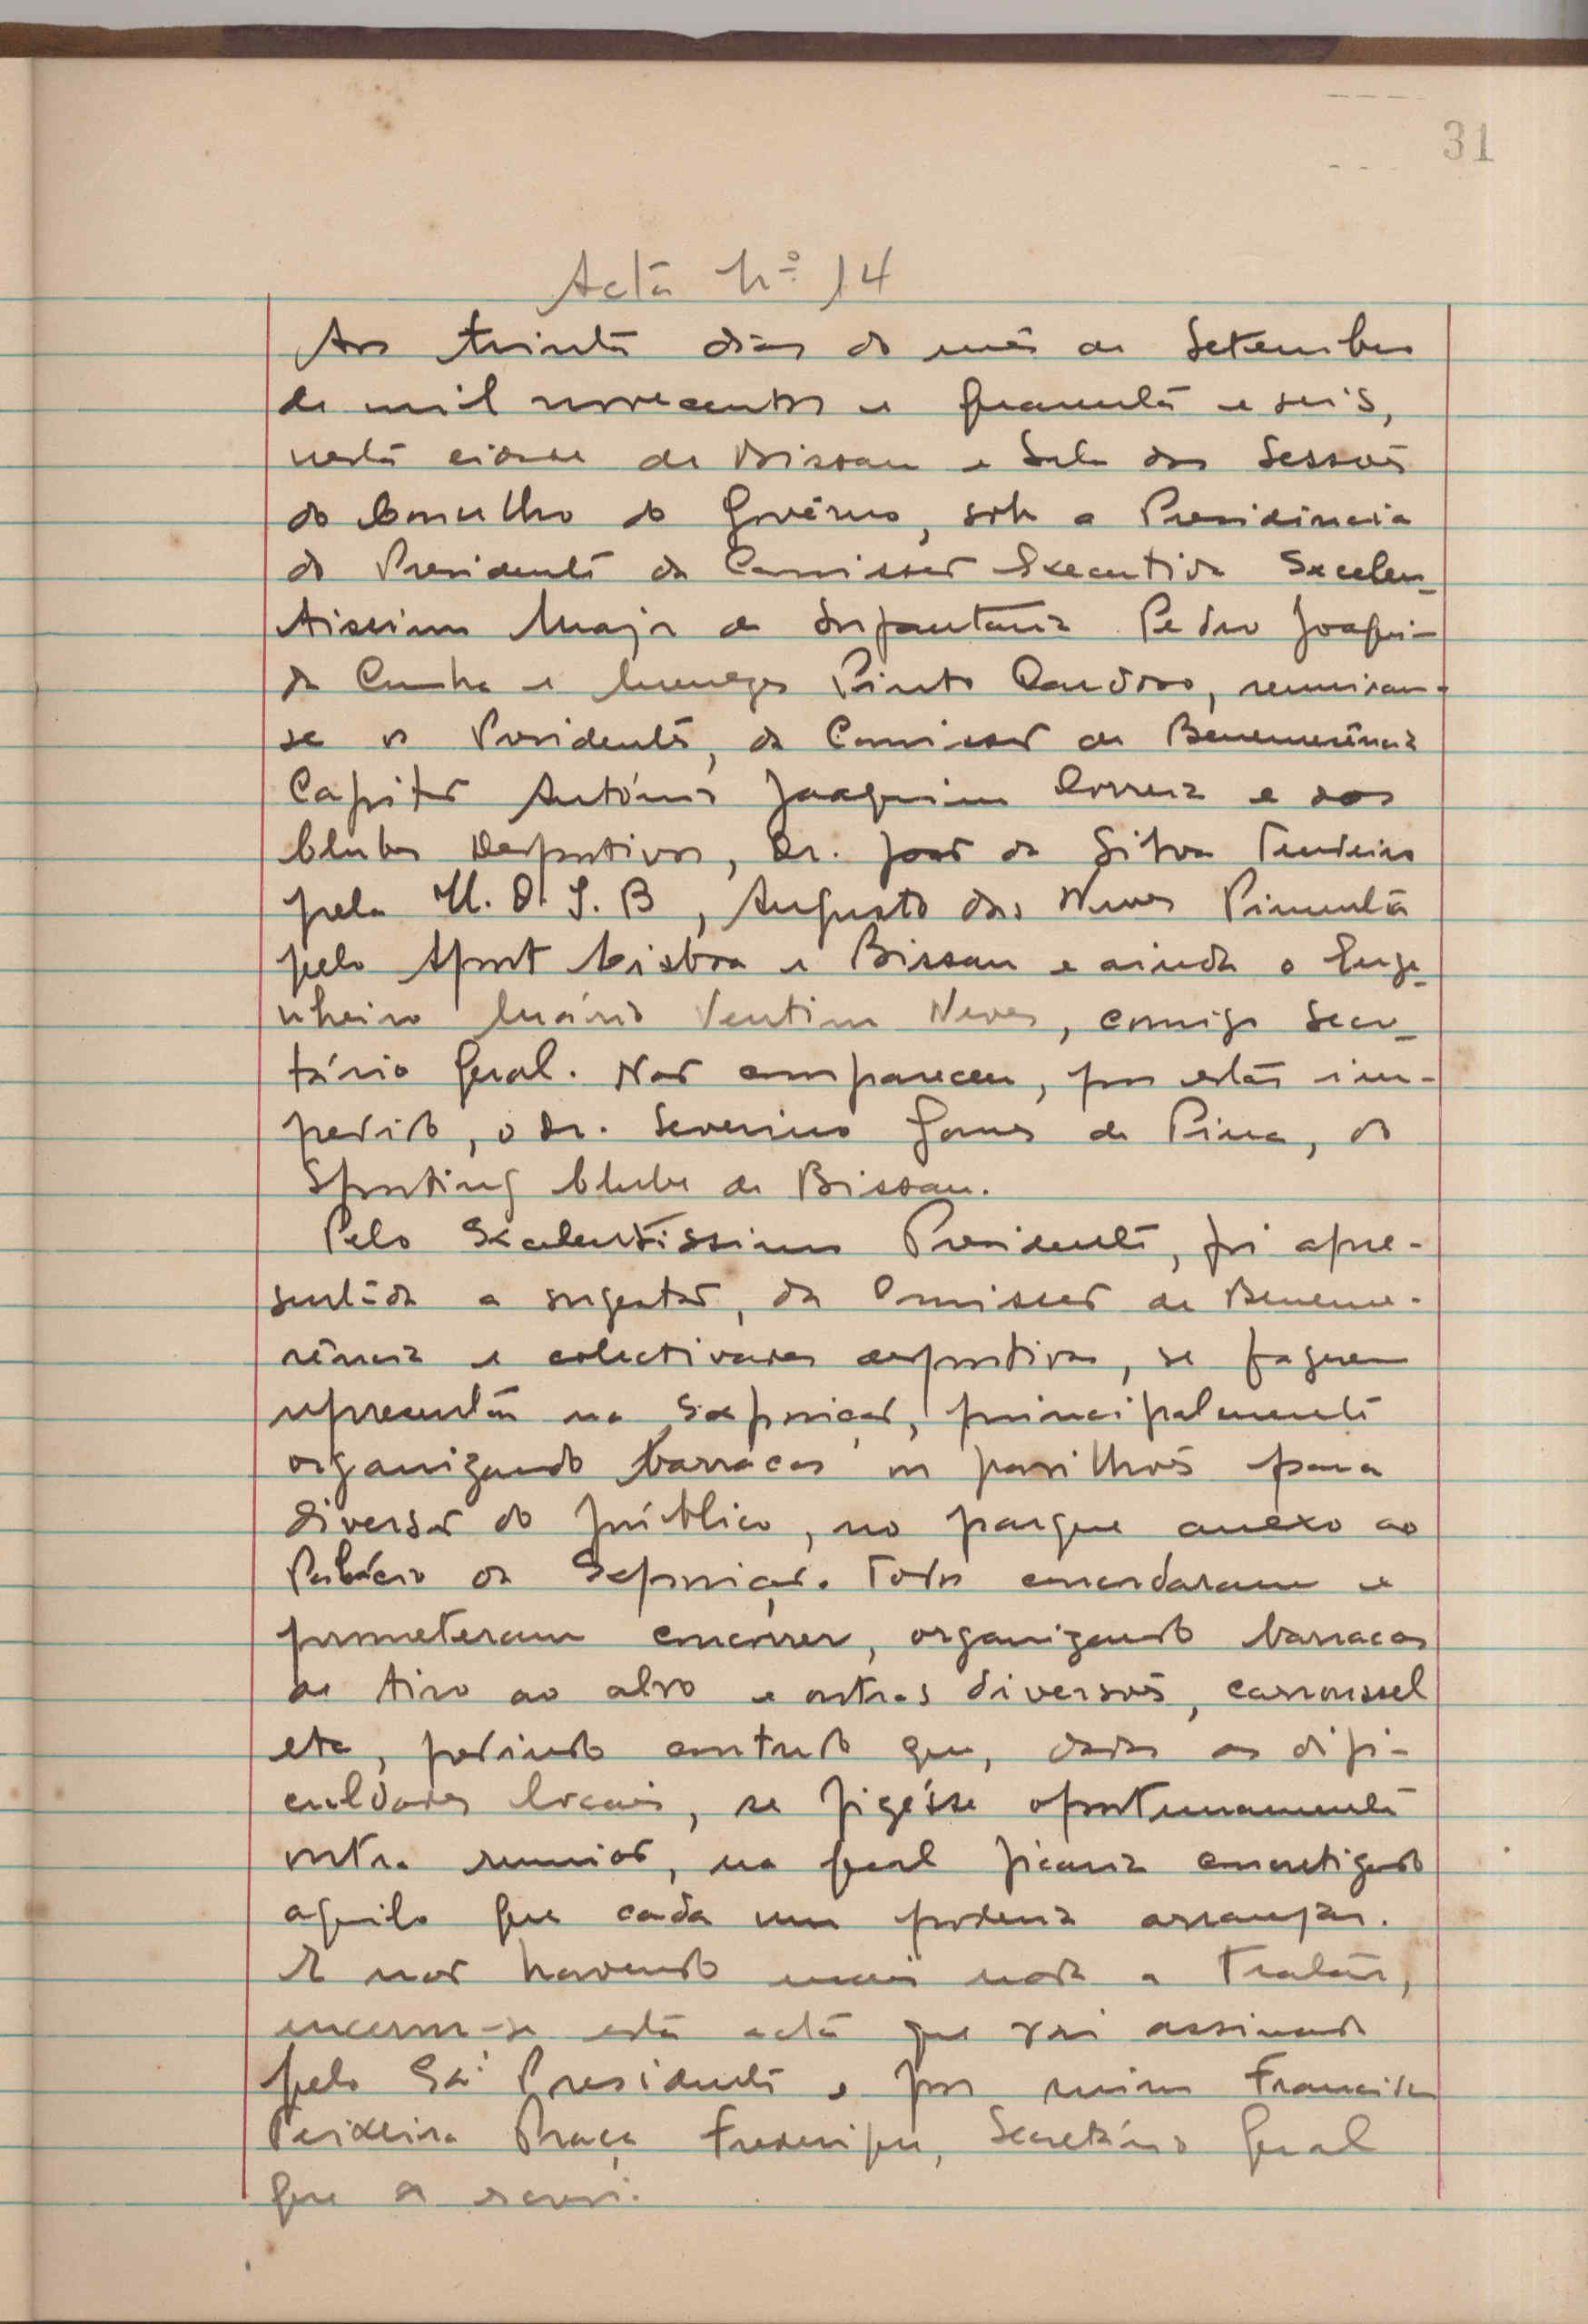 31
Acta Nº 14
Aos trinta dias do mês de Setembro
de mil novecentos e quarenta e seis,
nesta cidade de Bissau e Sala das Sessões
do Conselho do Govêrno, sob a Presidência
do Presidente da Comissão Executiva Excelen-
tissimo Major de Infantaria Pedro Joaquim
da Cunha e Menezes Pinto Cardoso, reuniram-
se os Presidentes, da Comissão de Benemerência
Capitão António Joaquim Correia e dos
Clubes Desportivos, Dr. João da Silva
pela U. D. I. B, Augusto das Neves Pimenta
pelo Sport Lisboa e Bissau e ainda o Enge-
nheiro Mário Ventim Neves, comigo Secre-
tário Geral. Não compareceu, por estar im-
pedido, o Dr. Severino Gomes de Pina, do
Sporting Clube de Bissau.
Pelo Excelentissimo Presidente, foi apre-
sentada a sugestão, da Comissão de Beneme-
rência e colectividades desportivas, se fazerem
representar na Exposição, principalmente
organizando barracas ou pavilhões para
diversão do público, no parque anexo ao
Palácio da Exposição. Todos concordaram e
prometeram concorrer, organizando barracas
de tiro ao alvo e outras diversões, carroussel
etc, pedindo contudo que, dadas as difi-
culdades locais, se fizésse oportunamente
outra reunião, na qual ficaria concretizado
aquilo que cada um poderia arranjar.
E não havendo mais nada a tratar,
encerrou-se esta acta que vai assinada
pelo Ex.º Presidente e por mim Francisco
Teixeira Frederico, Secretário Geral
que a escrevi.